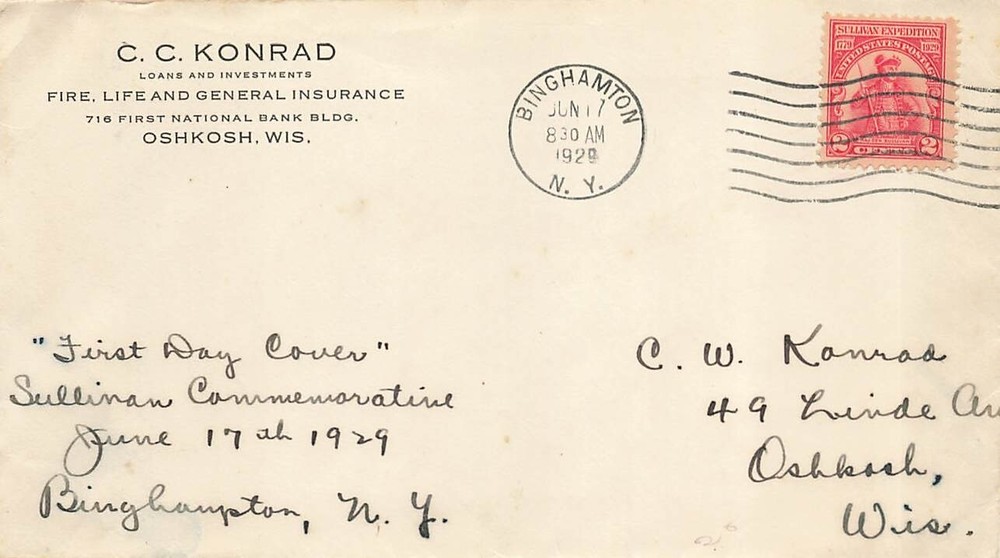 C. C. KONRAD
LOANS AND INVESTMENTS
FIRE, LIFE AND GENERAL INSURANCE
716 FIRST NATIONAL BANK BLDG.
OSHKOSH, WIS.
BINGHAMTON
JUN 17
8 30 AM
1929
N. Y.
SULLIVAN EXPEDITION
1779 1929
UNITED STATES POSTAGE
2 CENTS 2
"First Day Cover"
Sullivan Commemorative
June 17th 1929
Binghampton, N. Y.
C. W. Konrad
49 Linde Av
Oshkosh,
Wis.